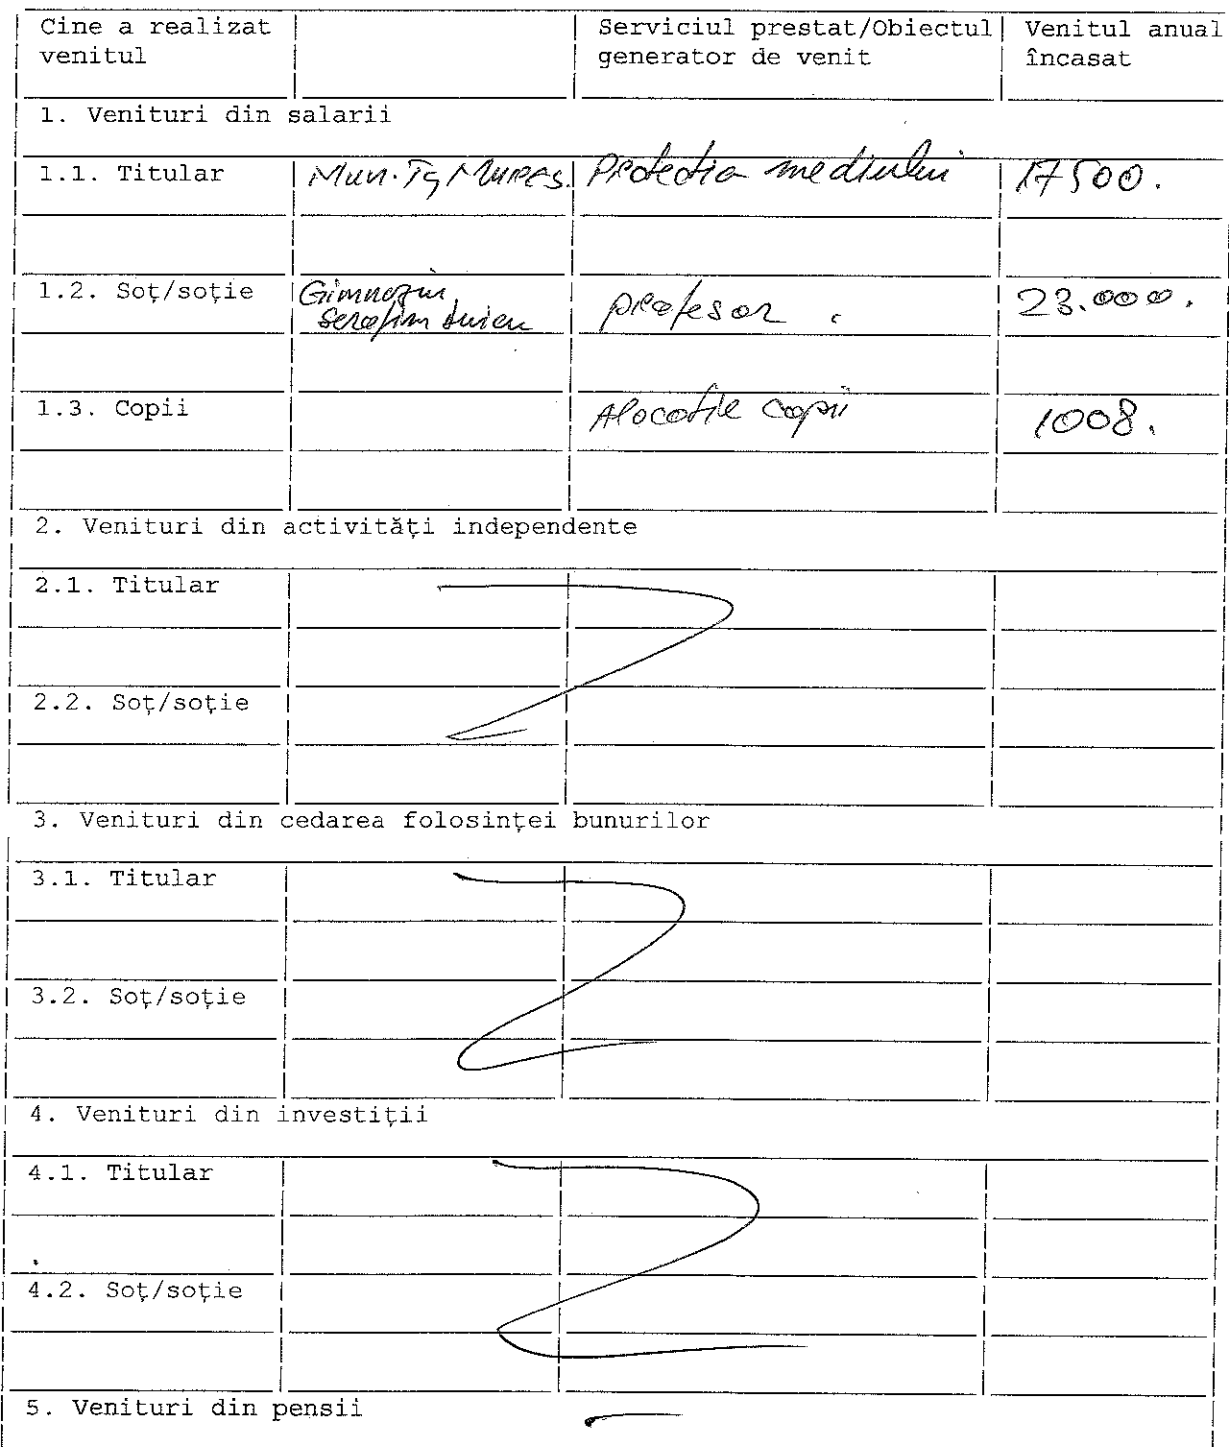 Cine a realizat Serviciul prestat/Obiectul Venitul anual
venitul generator de venit încasat
1. Venituri din salarii
1.1. Titular Mun. Tg Mureș. Protectia mediului 17500.
1.2. Soț/soție Gimnaziu profesor. 23.000.
Serafim Duicu
1.3. Copii Alocatie copii 1008.
2. Venituri din activități independente
2.1. Titular
2.2. Soț/soție
3. Venituri din cedarea folosinței bunurilor
3.1. Titular
3.2. Soț/soție
4. Venituri din investiții
4.1. Titular
4.2. Soț/soție
5. Venituri din pensii